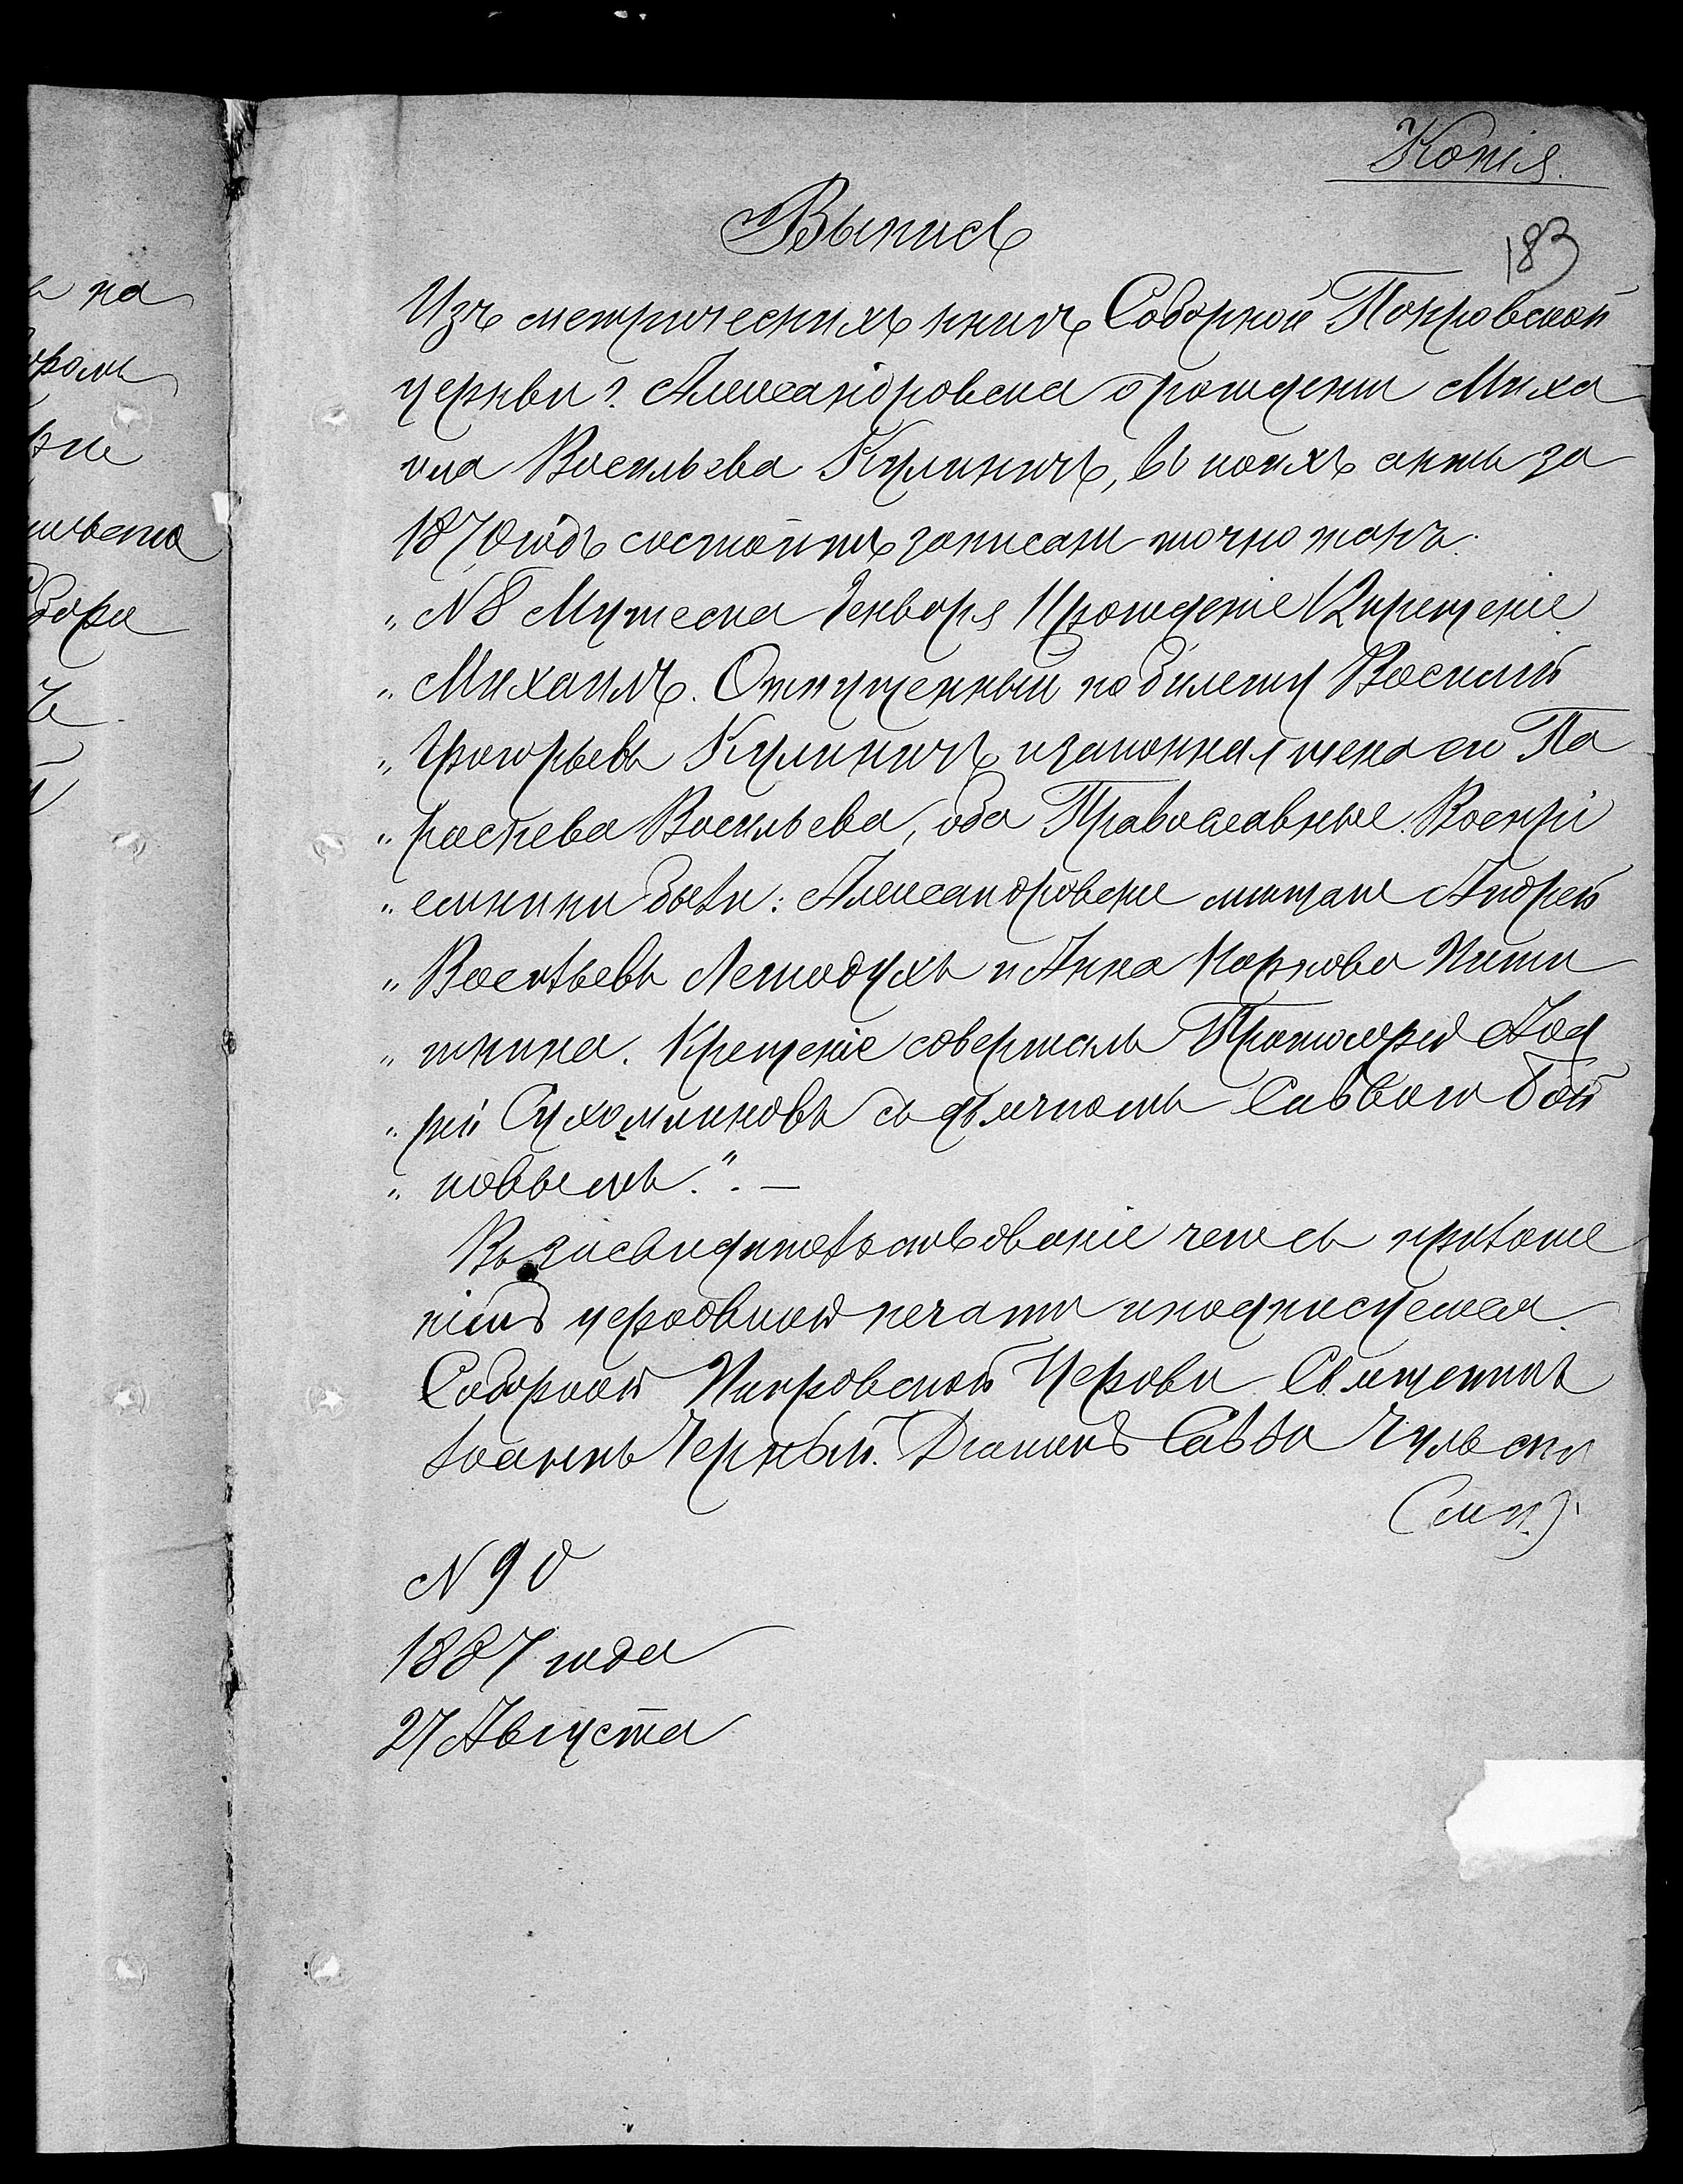 Копія.
183
Выпись
Изъ метрическихъ книгъ Соборной Покровской
церкви г. Александровска о рожденіи Миха
ила Васильева Кулинича, въ коихъ актъ за
1870 годъ состоитъ записанъ точно такъ:
„ N 8 Мужеска Генваря 11 рожденіе 12 крещеніе
„ Михаилъ. Отпущенный по билету Василій
„ Григорьевъ Кулиничъ и законная жена его Па
„ раскева Васильева, оба Православные. Воспрі
„ емники были: Александровскіе мѣщане Андрей
„ Васильевъ Легкодухъ и Анна Карпова
„ Крещеніе совершалъ Протоіерей Анд
„ рей Сухомлиновъ съ дьячкомъ Саввою Бой
„ ковымъ.“. —
Въ засвидѣтельствованіе чего съ приложе
ніемъ церковной печати и подписуемся.
Соборной Покровской Церкви Священникъ
Іоаннъ Черный. Діаконъ Савва
(м п.)
N 90
1887 года
27 Августа
на